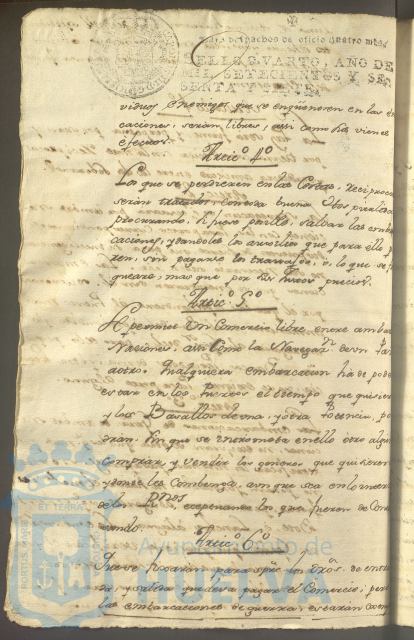 Para despachos de oficio quatro mrs.
SELLO QVARTO, AÑO DE
MIL SETECIENTOS Y SE-
SENTA Y SIETE.
viduos Enemigos que se enquentren en las
caciones, seran libres, asi como los vienes
efectos.
Artic.º 4.º
Los que se perdieren en las Costas,
seran tratados, con esta buena
procurando, si fuere posible, salbar las emb
caciones, y dandoles los auxilios que para ello
zen, sin pagarse los travajos, ò, lo que se
queare, mas que por sus justos precios.
Artic.º 5.º
Se permite Un Comercio libre, entre ambas
Naciones, asi Como la Navegaz.n de un Pais
a otro. Qualquiera embarcacion ha de pode
estar en los Puertos el tiempo que quisier
y los Basallos de una, y otra Potencia, po
dran. Sin que se entrometa en ello otro algu
comprar, y vender los generos que quisieren
y donde les Combenga, aun que sea en lo interi
de los Reinos exceptuando los que fueren de Con
vando.
Artic.º 6.º
Que se fixaran, para spre. los dros. de entra
da, y salida que deva pagar el Comercio; pero
las embarcaciones de guerra, estaran exem
PORTUS MARIS
ET TERRAE
Ayuntamiento de
HUELVA